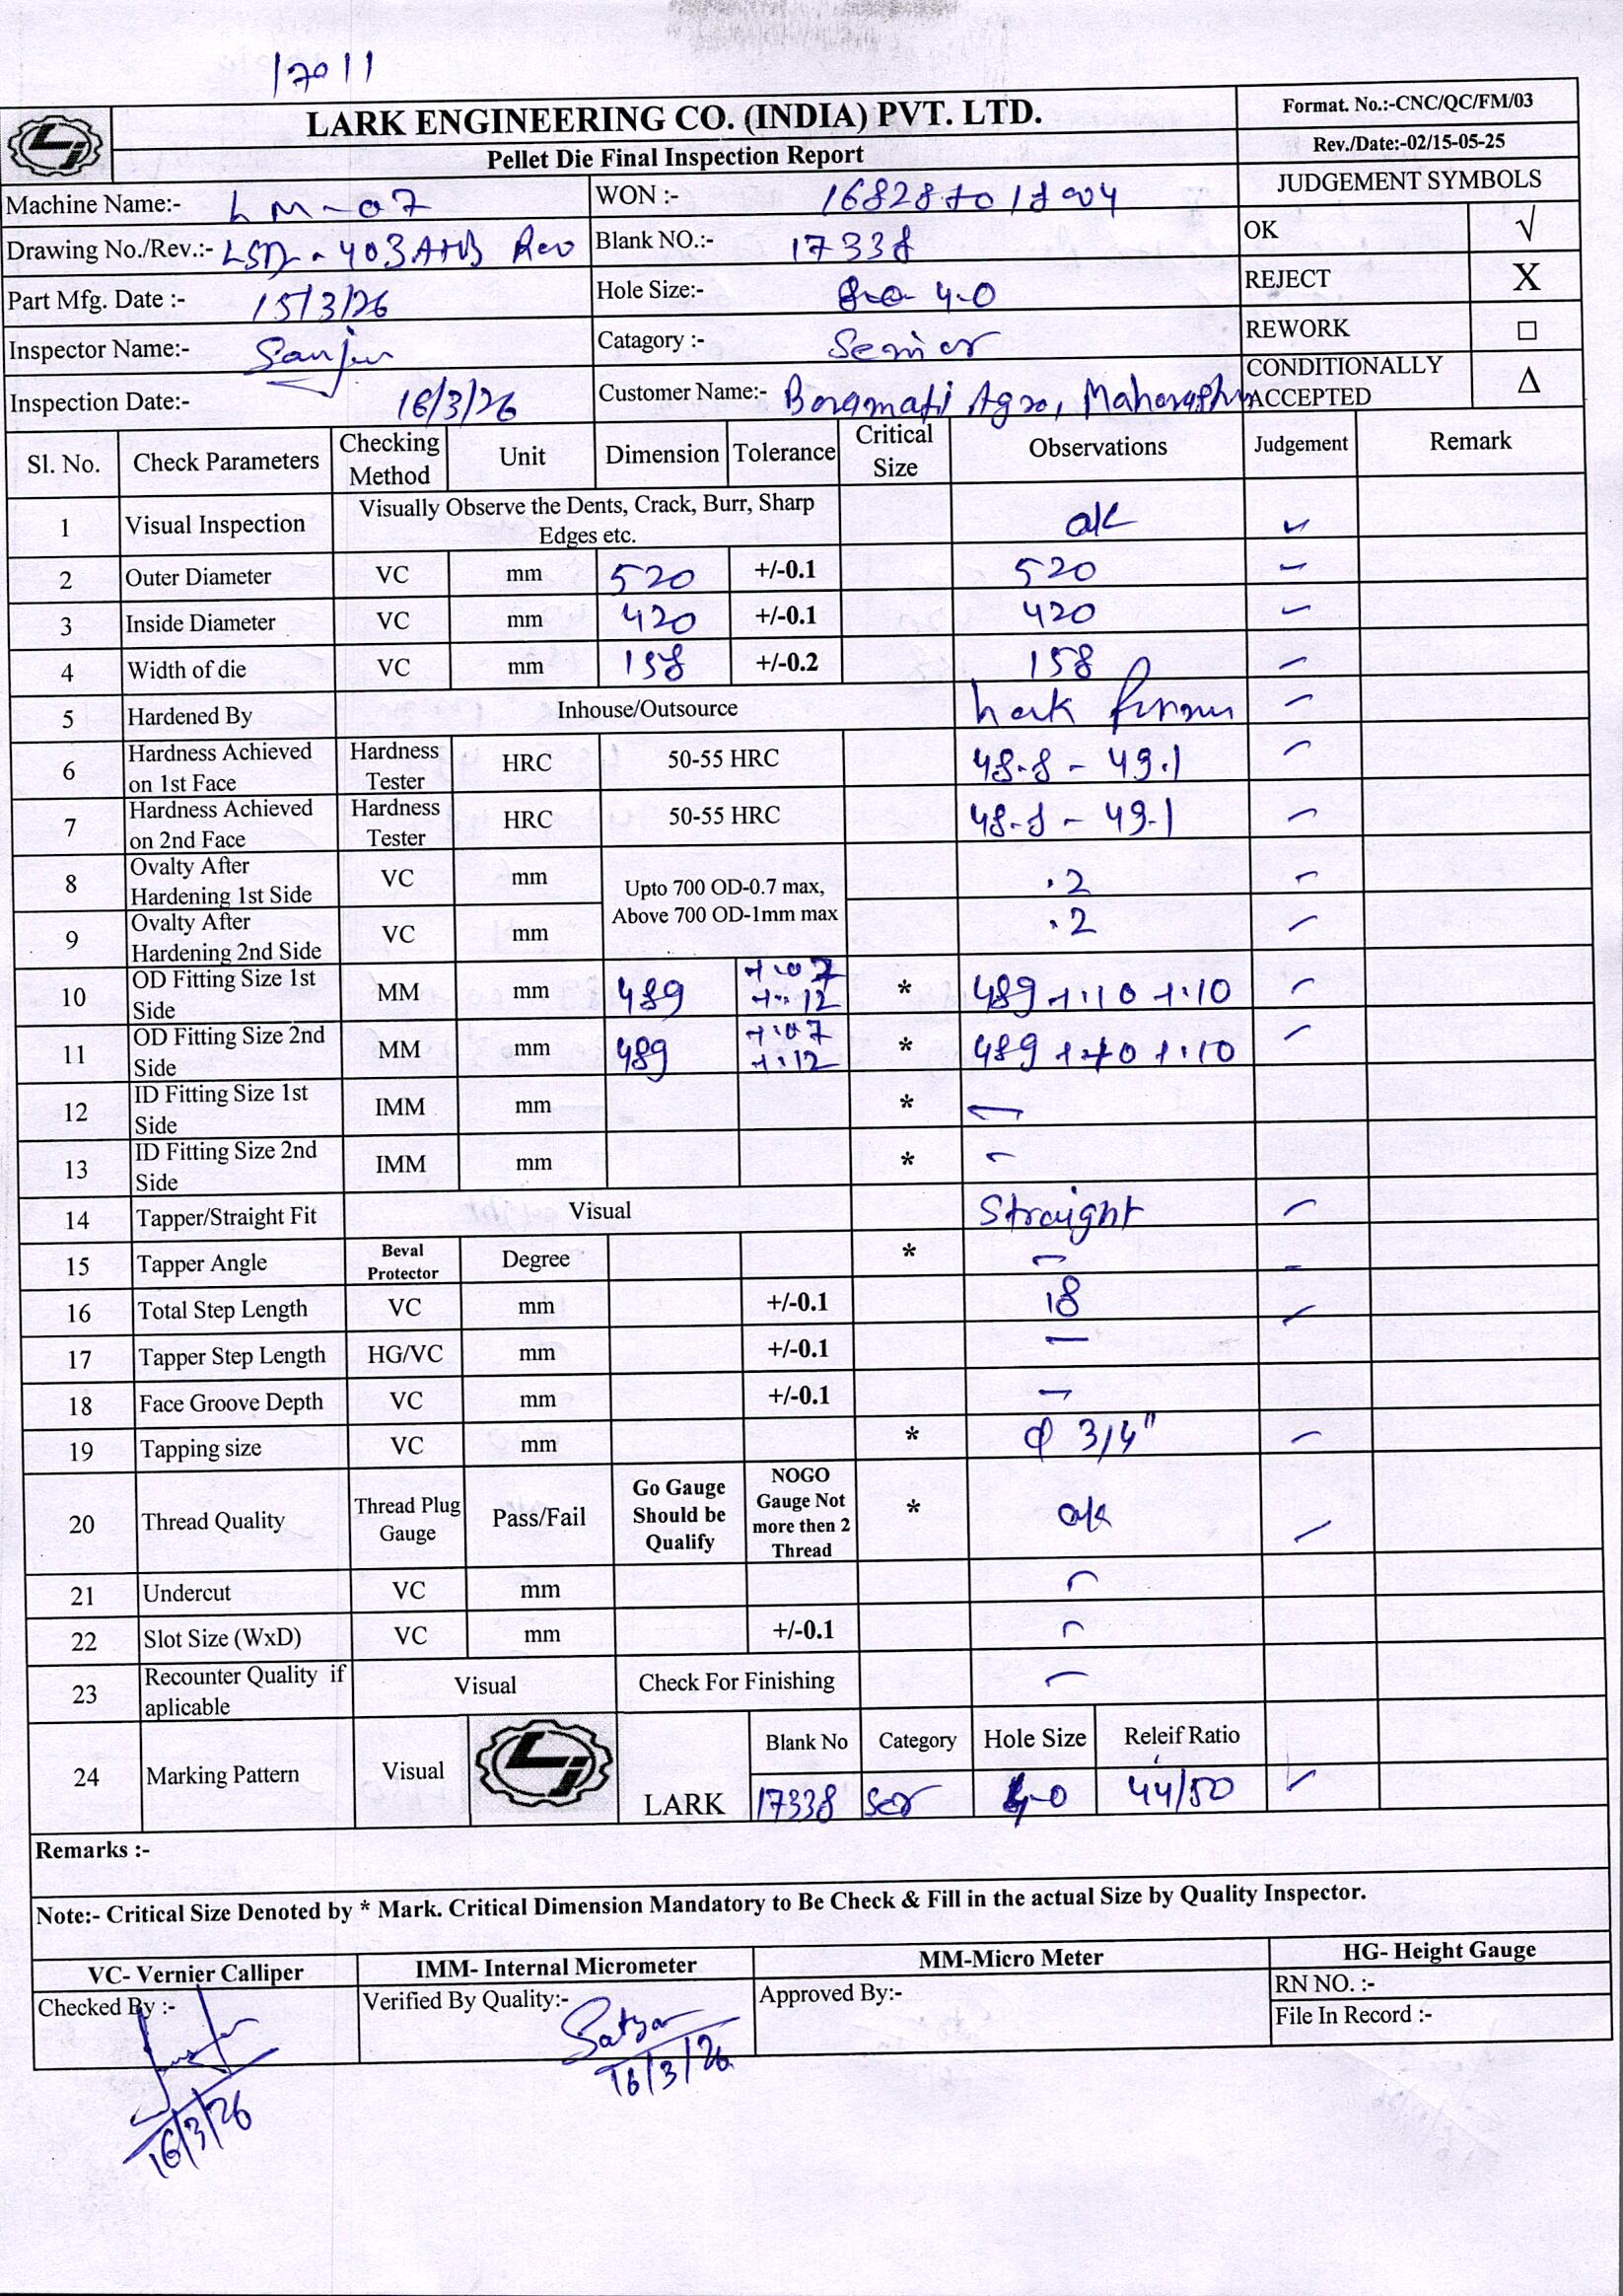 17011
LARK ENGINEERING CO. (INDIA) PVT. LTD.
Pellet Die Final Inspection Report
Format. No.:-CNC/QC/FM/03
Rev./Date:-02/15-05-25
Machine Name:- LM-07 WON :- 16828 to 18004
JUDGEMENT SYMBOLS
Drawing No./Rev.:- Blank NO.:- 17338 OK √
Part Mfg. Date :- 15/3/26 Hole Size:- 4.0 REJECT X
Inspector Name:- Sanju Catagory :- Senior REWORK □
Inspection Date:- 16/3/26 Customer Name:- Agro, CONDITIONALLY ACCEPTED Δ
Sl. No. Check Parameters Checking Method Unit Dimension Tolerance Critical Size Observations Judgement Remark
1 Visual Inspection Visually Observe the Dents, Crack, Burr, Sharp Edges etc. ok ✓
2 Outer Diameter VC mm 520 +/-0.1 520
3 Inside Diameter VC mm 420 +/-0.1 420
4 Width of die VC mm 158 +/-0.2 158
5 Hardened By Inhouse/Outsource Lark
6 Hardness Achieved on 1st Face Hardness Tester HRC 50-55 HRC 48.8 - 49.1
7 Hardness Achieved on 2nd Face Hardness Tester HRC 50-55 HRC 48.8 - 49.1
8 Ovalty After Hardening 1st Side VC mm Upto 700 OD-0.7 max, Above 700 OD-1mm max .2
9 Ovalty After Hardening 2nd Side VC mm .2
10 OD Fitting Size 1st Side MM mm 489 +.07 +.12 * 489 +.10 +.10
11 OD Fitting Size 2nd Side MM mm 489 +.07 +.12 * 489 +.10 +.10
12 ID Fitting Size 1st Side IMM mm * -
13 ID Fitting Size 2nd Side IMM mm * -
14 Tapper/Straight Fit Visual Straight
15 Tapper Angle Beval Protector Degree * -
16 Total Step Length VC mm +/-0.1 18
17 Tapper Step Length HG/VC mm +/-0.1 -
18 Face Groove Depth VC mm +/-0.1 -
19 Tapping size VC mm * φ 3/4"
20 Thread Quality Thread Plug Gauge Pass/Fail Go Gauge Should be Qualify NOGO Gauge Not more then 2 Thread * ok
21 Undercut VC mm -
22 Slot Size (WxD) VC mm +/-0.1 -
23 Recounter Quality if aplicable Visual Check For Finishing -
24 Marking Pattern Visual LARK Blank No Category Hole Size Releif Ratio
17338 4.0 44/50 ✓
Remarks :-
Note:- Critical Size Denoted by * Mark. Critical Dimension Mandatory to Be Check & Fill in the actual Size by Quality Inspector.
VC- Vernier Calliper IMM- Internal Micrometer MM-Micro Meter HG- Height Gauge
Checked By :- Verified By Quality:- Approved By:- RN NO. :-
File In Record :-
16/3/26
16/3/26